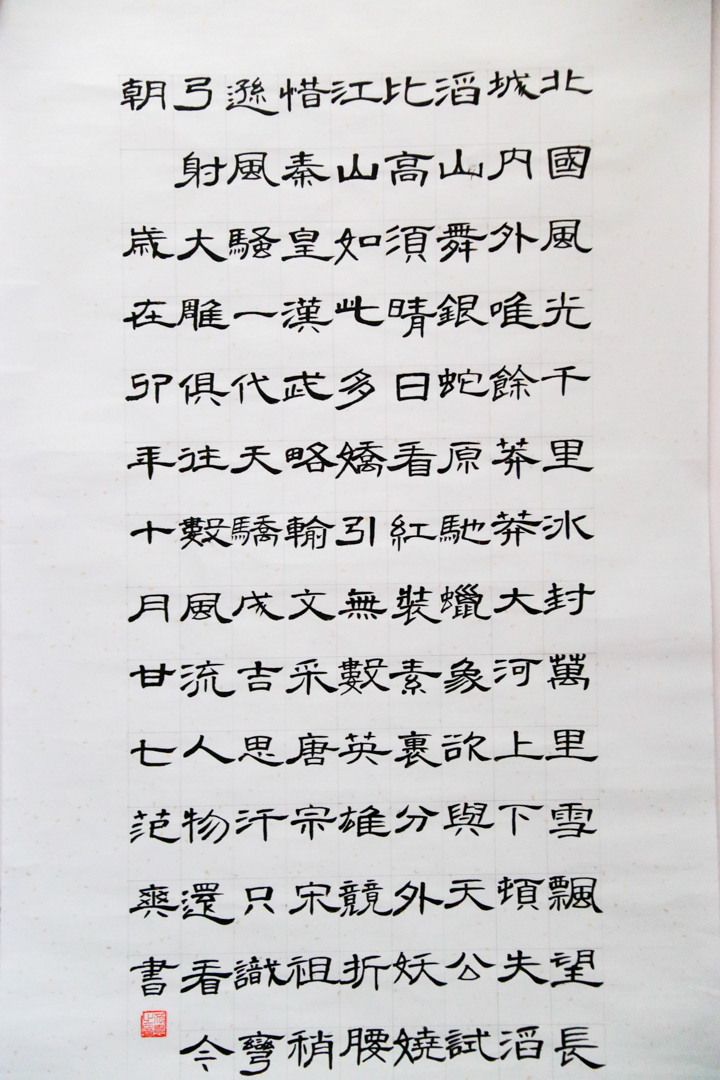 北國風光千里冰封萬里雪飄望長
城内外唯餘莽莽大河上下頓失滔
滔山舞銀蛇原馳蠟象欲與天公試
比高須晴日看紅裝素裹分外妖嬈
江山如此多嬌引無數英雄競折腰
惜秦皇漢武略輸文采唐宗宋祖稍
遜風騷一代天驕成吉思汗只識彎
弓射大雕俱往數風流人物還看今
朝 歲在卯年十月甘七范爽書